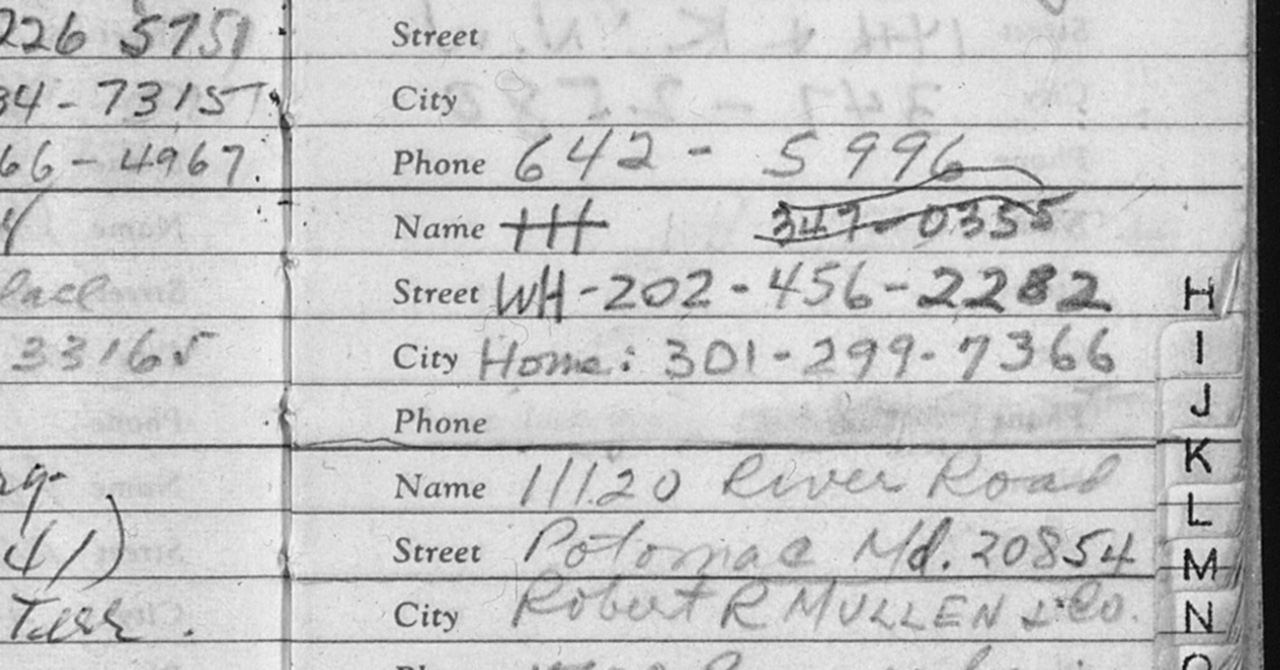 226 5751
34-73157
66-4967
lace
33165
41)
Terr.
Street
City
Phone 642- 5996
Name HH 347-0355
Street WH-202-456-2282
City Home: 301-299-7366
Phone
Name 11120 River Road
Street Potomac Md. 20854
City Robert R MULLEN & Co.
H
I
J
K
L
M
N